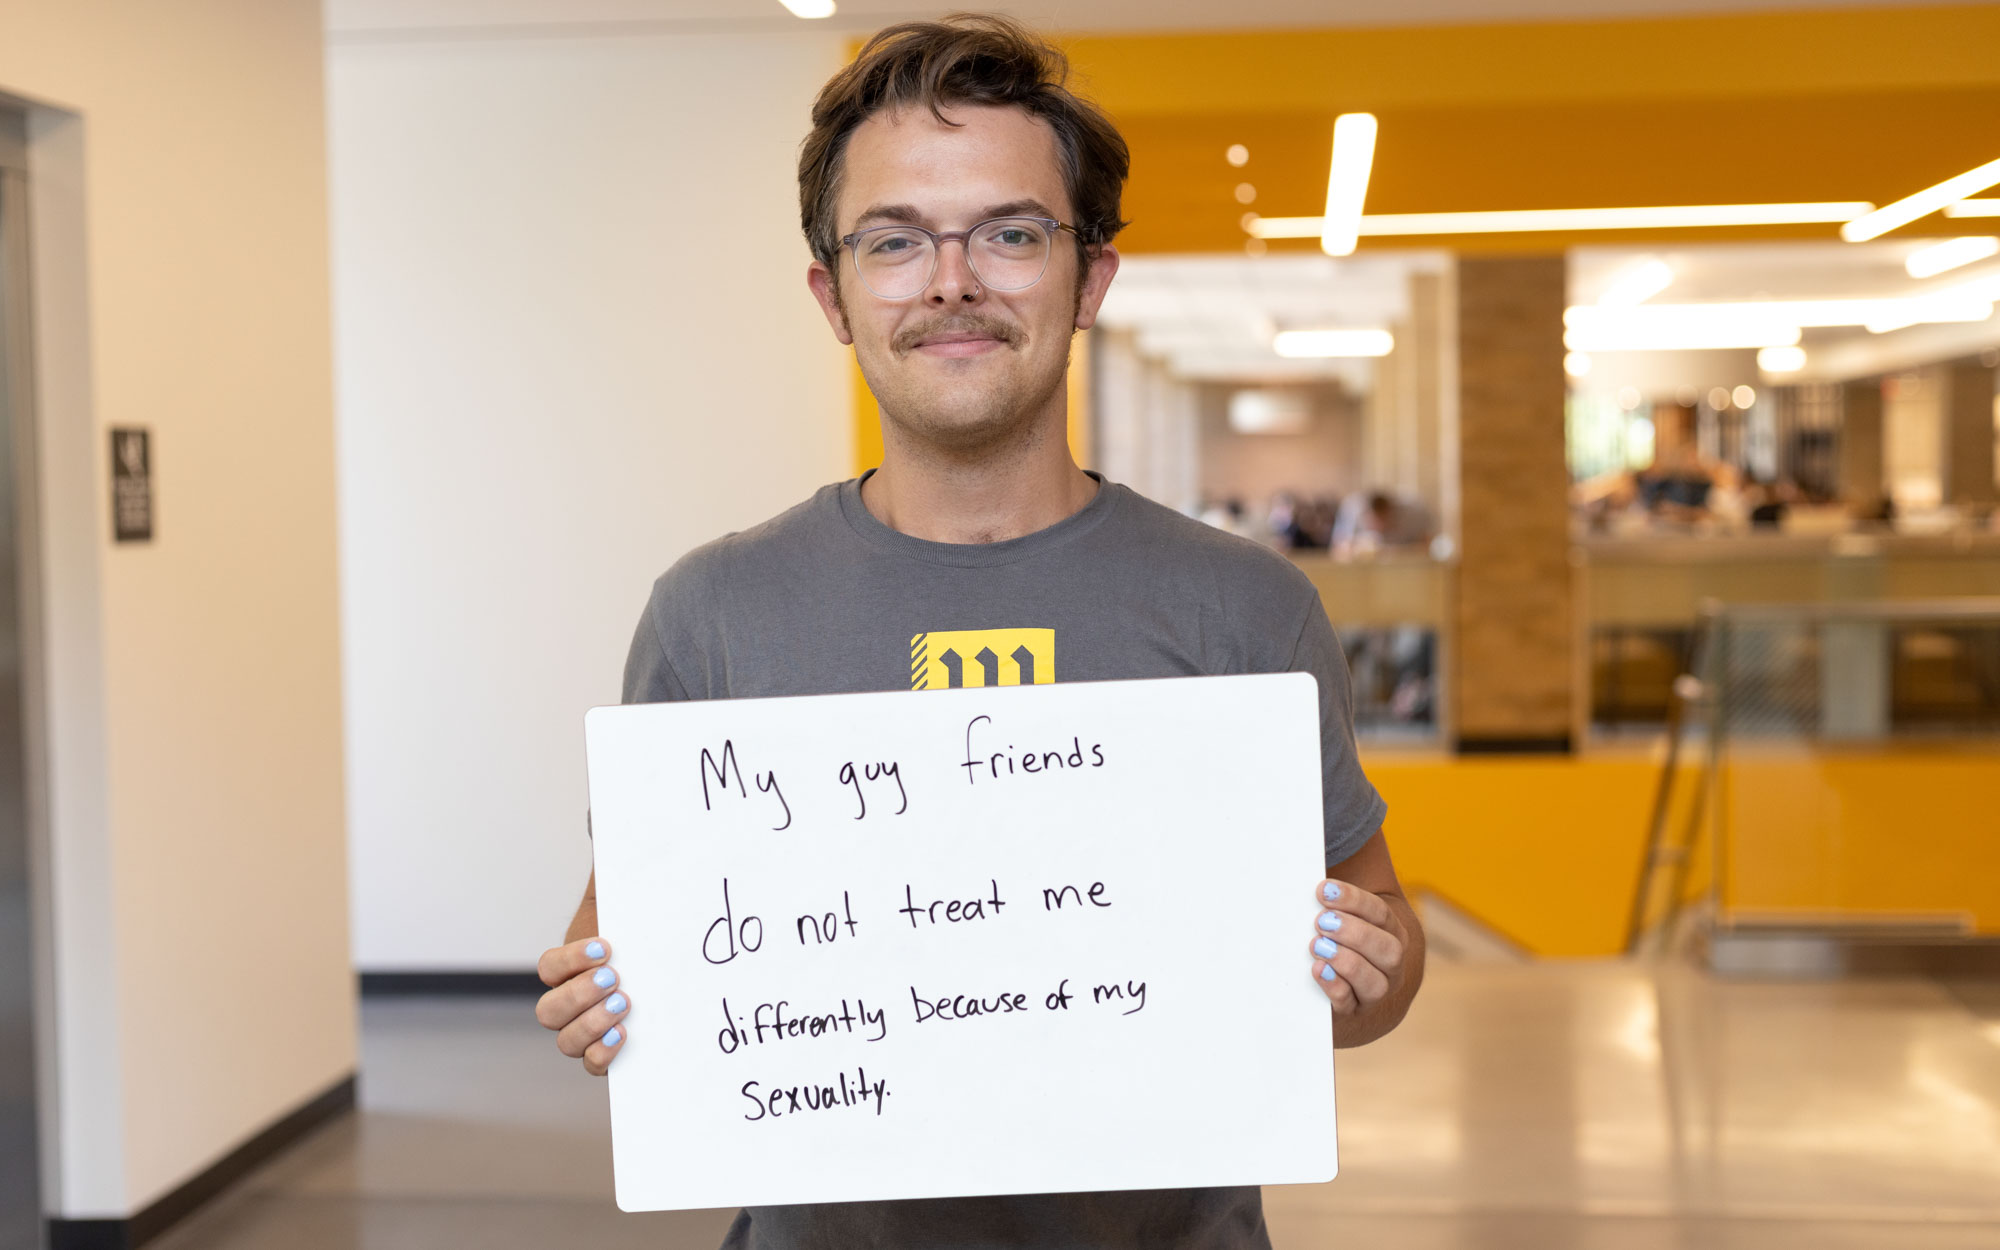 My guy friends
do not treat me
differently because of my
sexuality.